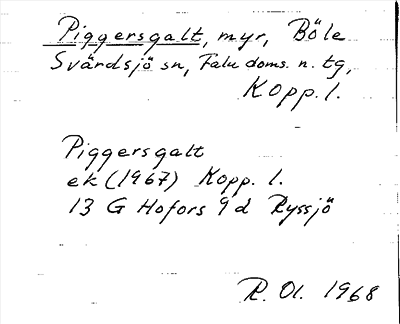 Piggersgalt, myr, Böle
Svärdsjö sn, Falu doms. n. tg,
Kopp. l.
Piggersgalt
ek (1967) Kopp. l.
13 G Hofors 9 d Ryssjö
R. Ol. 1968